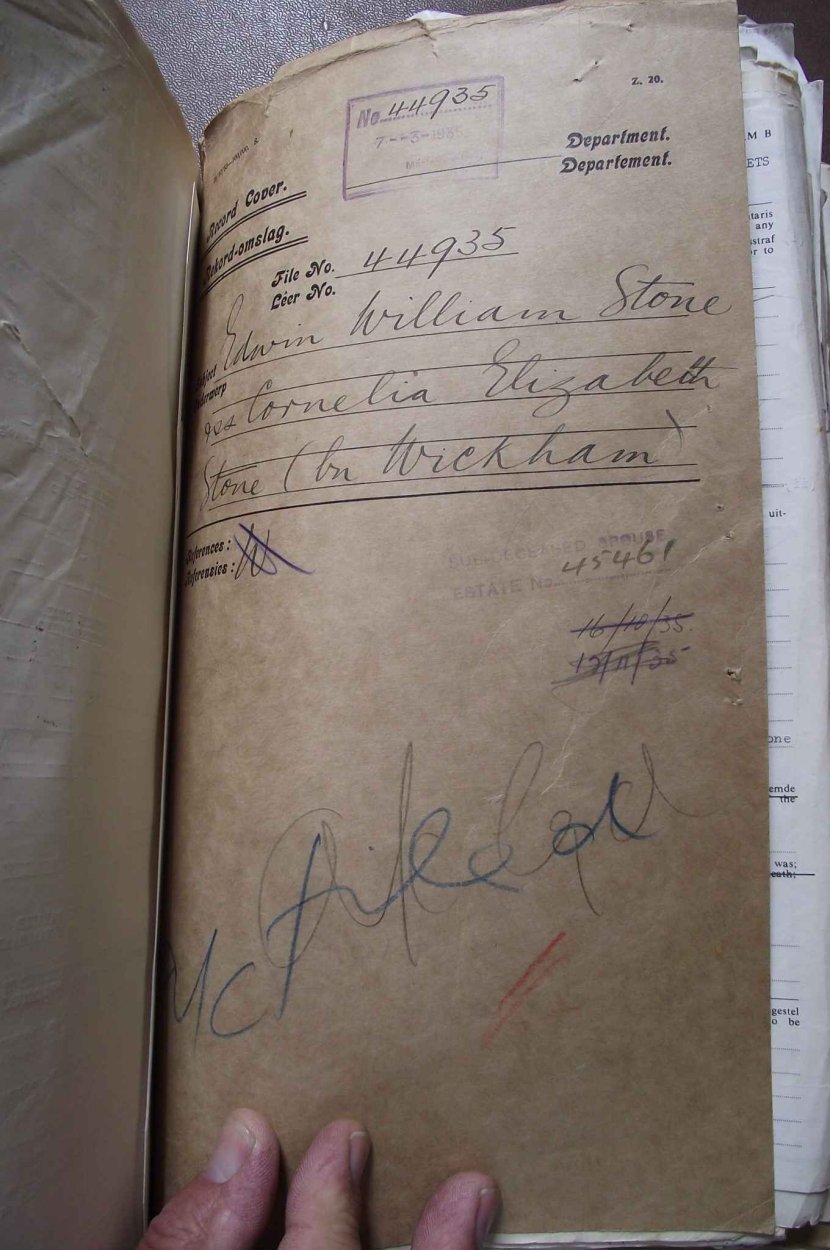 Z. 20.
No. 44935
7-3-1935
Department.
Departement.
Record Cover.
Rekord-omslag.
File No. 44935
Lêer No.
Subject Edwin William Stone
Onderwerp
Cornelia Elizabeth
Stone (bn Wickham)
References:
Referensies:
SUB-DECEASED SPOUSE
ESTATE No. 45461
16/10/35.
12/11/35
Filed
M B
ETS
taris
any
sstraf
or to
uit-
one
emde
the
was;
eath;
gestel
o be